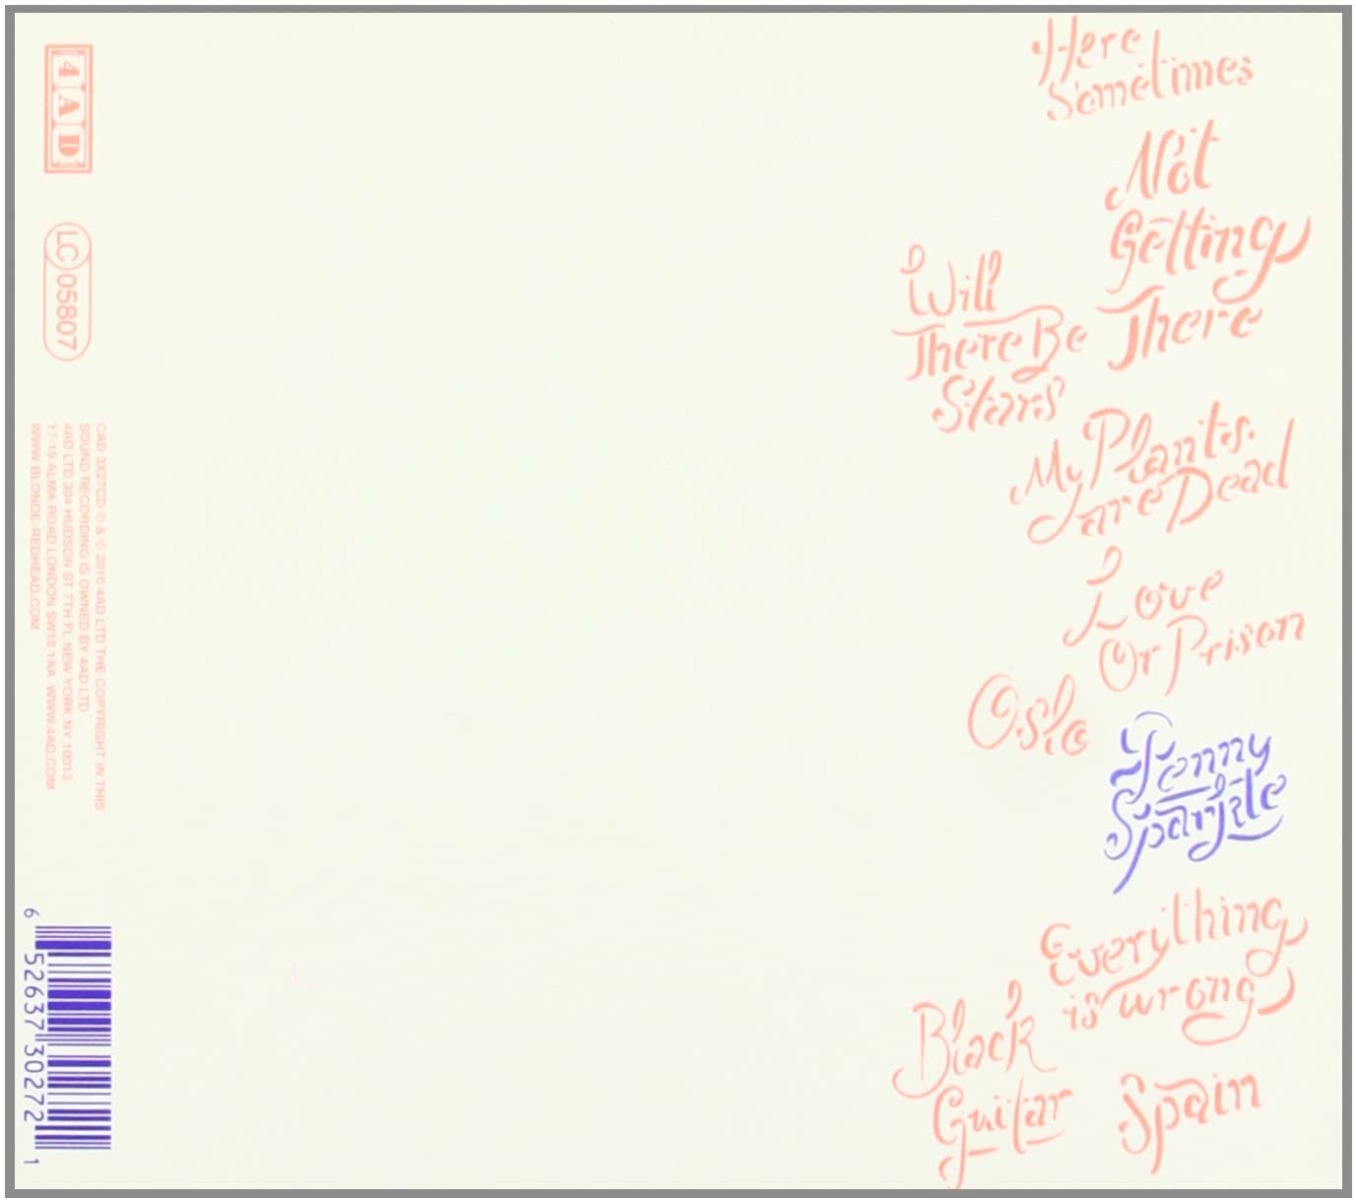 4AD
LC 05807
CAD 3X27CD ℗ & © 2010 4AD LTD THE COPYRIGHT IN THIS
SOUND RECORDING IS OWNED BY 4AD LTD
4AD LTD 304 HUDSON ST 7TH FL NEW YORK NY 10013
17-19 ALMA ROAD LONDON SW18 1AA WWW.4AD.COM
WWW.BLONDE-REDHEAD.COM
6 52637 30272 1
Here
Sometimes
Not
Getting
There
Will
There Be
Stars
My Plants
are Dead
Love
Or Prison
Oslo
Penny
Sparkle
Everything
is wrong
Black
Guitar
Spain